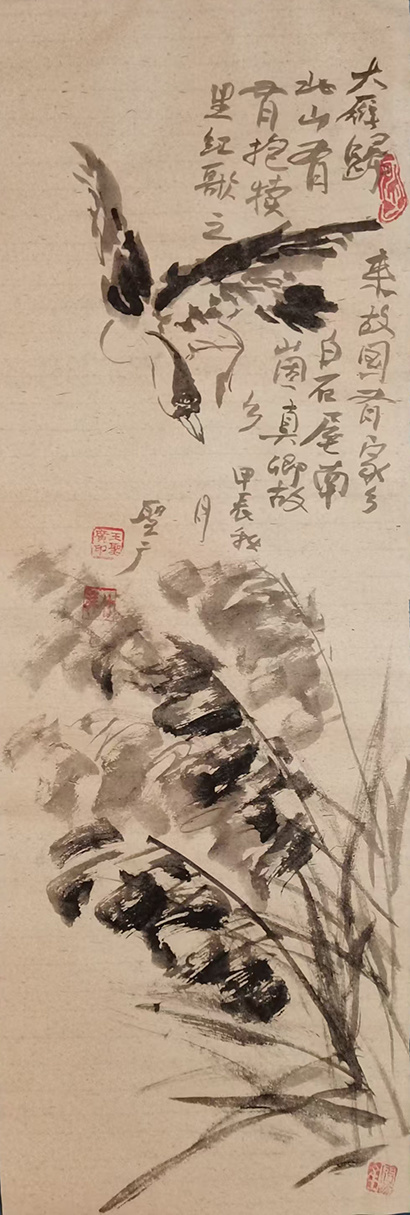 大雁歸來故園看家乡
北山有白石屋南
有抱犊崮真卿故
里紅歌之乡
甲辰秋
月
聖广